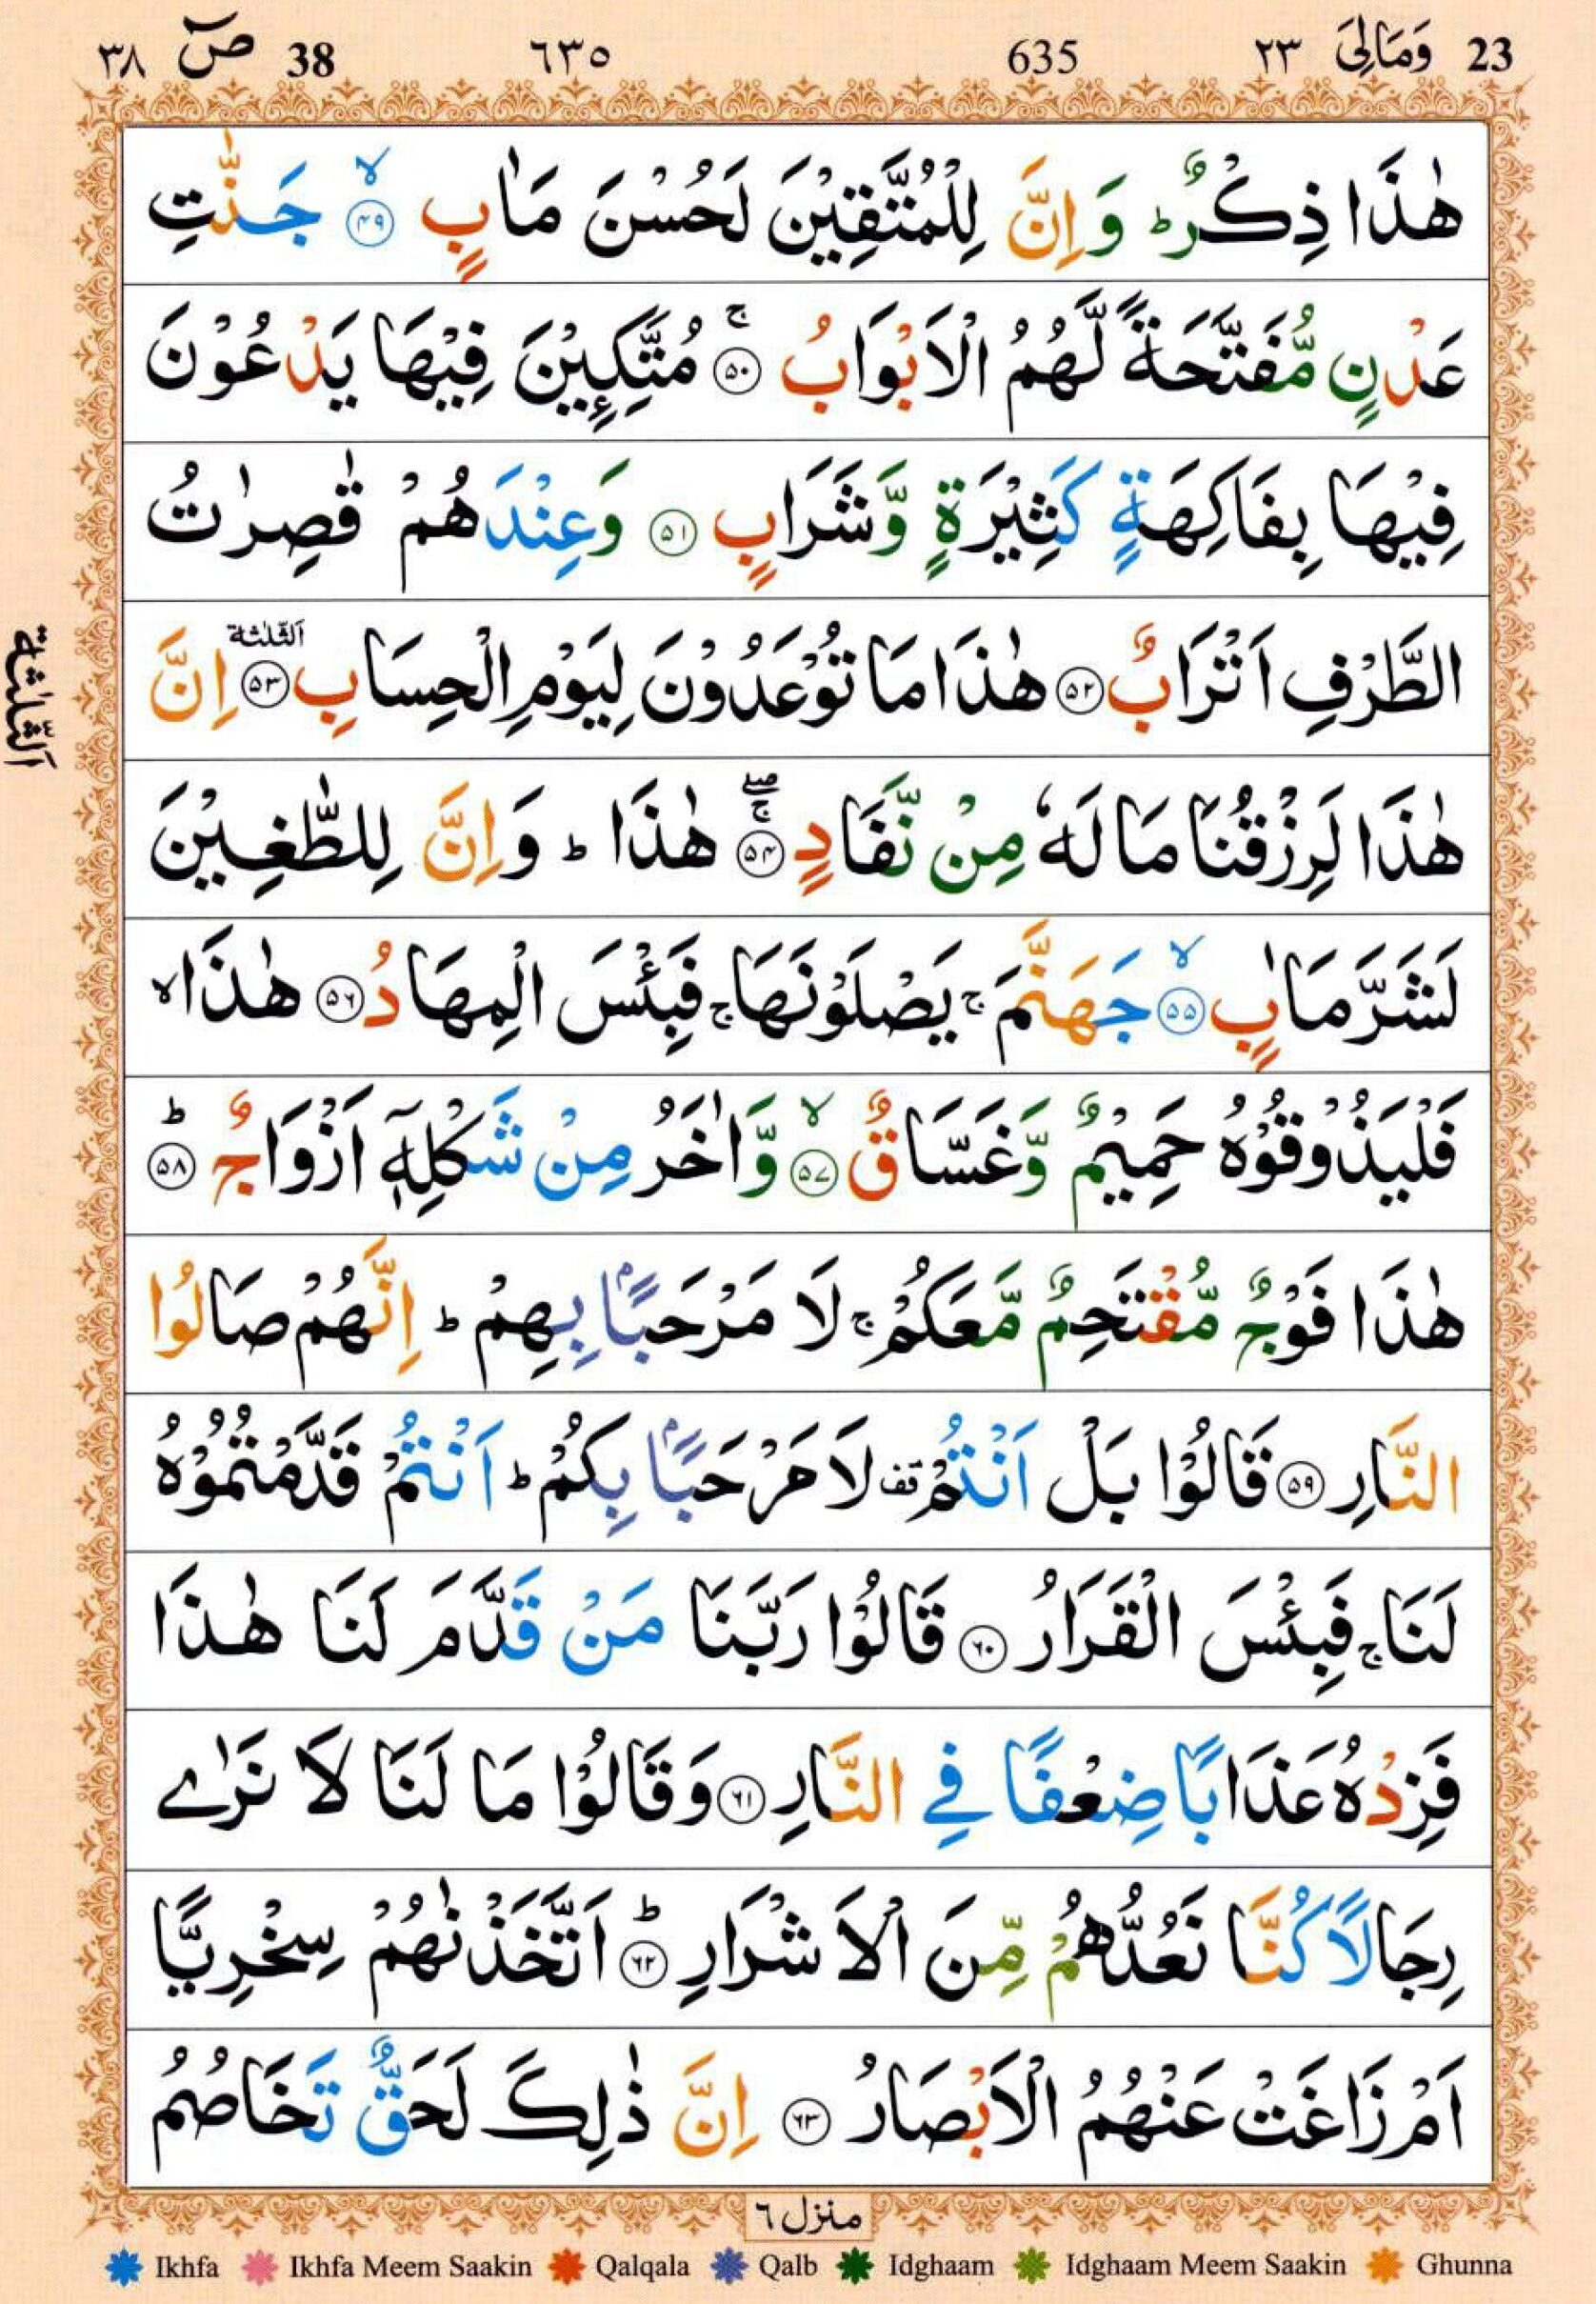 23 وَمَالِیَ ٢٣ 635 ٦٣٥ 38 صٓ ٣٨
هٰذَا ذِكْرٌ ؕ وَ اِنَّ لِلْمُتَّقِیْنَ لَحُسْنَ مَاٰبٍ ۙ﴿۴۹﴾ جَنّٰتِ
عَدْنٍ مُّفَتَّحَةً لَّهُمُ الْاَبْوَابُ ۚ﴿۵۰﴾ مُتَّكِـِٕیْنَ فِیْهَا یَدْعُوْنَ
فِیْهَا بِفَاكِهَةٍ كَثِیْرَةٍ وَّشَرَابٍ ﴿۵۱﴾ وَعِنْدَهُمْ قٰصِرٰتُ
الطَّرْفِ اَتْرَابٌ ﴿۵۲﴾ هٰذَا مَا تُوْعَدُوْنَ لِیَوْمِ الْحِسَابِ ﴿۵۳﴾ اَلثّلٰثة اِنَّ
اَلثّلٰثة
هٰذَا لَرِزْقُنَا مَا لَهٗ مِنْ نَّفَادٍ ۚۖ﴿۵۴﴾ هٰذَا ؕ وَاِنَّ لِلطّٰغِیْنَ
لَشَرَّ مَاٰبٍ ۙ﴿۵۵﴾ جَهَنَّمَ ۚ یَصْلَوْنَهَا ۚ فَبِئْسَ الْمِهَادُ ﴿۵۶﴾ هٰذَا ۙ
فَلْیَذُوْقُوْهُ حَمِیْمٌ وَّغَسَّاقٌ ۙ﴿۵۷﴾ وَّاٰخَرُ مِنْ شَكْلِهٖۤ اَزْوَاجٌ ؕ﴿۵۸﴾
هٰذَا فَوْجٌ مُّقْتَحِمٌ مَّعَكُمْ ۚ لَا مَرْحَبًۢا بِهِمْ ؕ اِنَّهُمْ صَالُوا
النَّارِ ﴿۵۹﴾ قَالُوْا بَلْ اَنْتُمْ قف لَا مَرْحَبًۢا بِكُمْ ؕ اَنْتُمْ قَدَّمْتُمُوْهُ
لَنَا ۚ فَبِئْسَ الْقَرَارُ ﴿۶۰﴾ قَالُوْا رَبَّنَا مَنْ قَدَّمَ لَنَا هٰذَا
فَزِدْهُ عَذَابًا ضِعْفًا فِی النَّارِ ﴿۶۱﴾ وَقَالُوْا مَا لَنَا لَا نَرٰی
رِجَالًا كُنَّا نَعُدُّهُمْ مِّنَ الْاَشْرَارِ ؕ﴿۶۲﴾ اَتَّخَذْنٰهُمْ سِخْرِیًّا
اَمْ زَاغَتْ عَنْهُمُ الْاَبْصَارُ ﴿۶۳﴾ اِنَّ ذٰلِكَ لَحَقٌّ تَخَاصُمُ
منزل ٦
Ikhfa Ikhfa Meem Saakin Qalqala Qalb Idghaam Idghaam Meem Saakin Ghunna